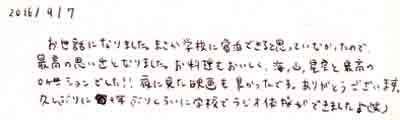 2016/9/7
お世話になりました。まさか学校に宿泊できると思っていなかったので、
最高の思い出となりました。お料理もおいしく、海、山、星空と最高の
ロケーションでした!! 夜に見た映画も良かったです。ありがとうございます。
久しぶりに 年ぶりくらいに学校でラジオ体操ができました♪(笑)